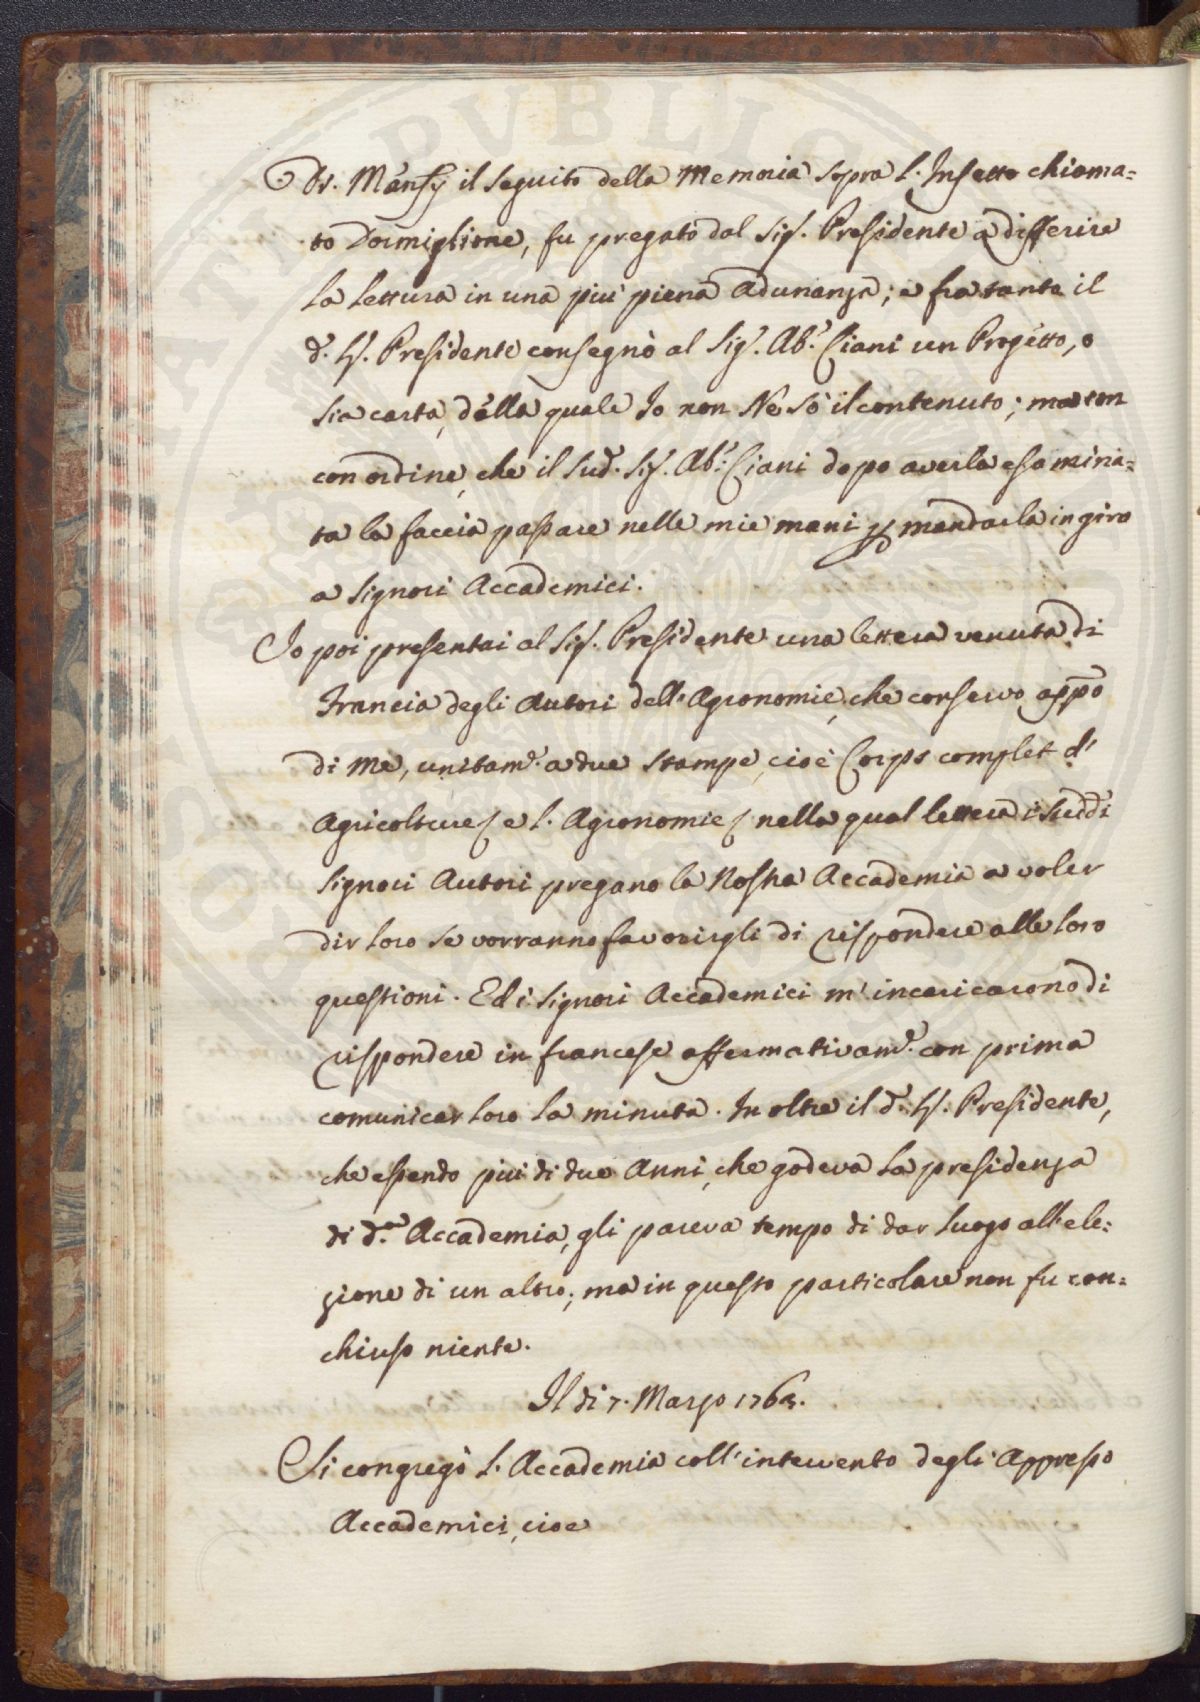 Dr. Mansij il seguito della Memoria sopra l'Insetto chiama=
to Dormiglione, fu pregato dal Sig.r Presidente a differire
la lettura in una più piena Adunanza; e fra tanto il
d.o Sr. Presidente consegnò al Sig.r Ab.e Ciani un Progetto, o
sia carta, della quale Io non Ne sò il contenuto; ma con
con ordine, che il Sud.o Sig.r Ab.e Ciani dopo averla esamina=
ta la faccia passare nelle mie mani p mandarla in giro
a Signori Accademici.
Io poi presentai al Sig.r Presidente una lettera venuta di
Francia degli Autori dell'Agronomie, che conservo appo
di Me, unitam.e a due stampe, cioè Corps complet d'
Agricolture, e l'Agronomie, nella qual lettera i sudd.i
Signori Autori pregano la Nostra Accademia a voler
dir loro se vorranno favorirgli di rispondere alle loro
questioni. Ed i Signori Accademici m'incaricarono di
rispondere in francese affermativam.e con prima
comunicar loro la minuta. In oltre il d.o Sr. Presidente,
che essendo più di due Anni, che godeva la presidenza
di d.a Accademia, gli pareva tempo di dar luogo all'ele=
zione di un altro; ma in questo particolare non fu con=
chiuso niente.
Il di 7. Marzo 1763.
Si congregò l'Accademia coll'intervento degli Appresso
Accademici, cioe